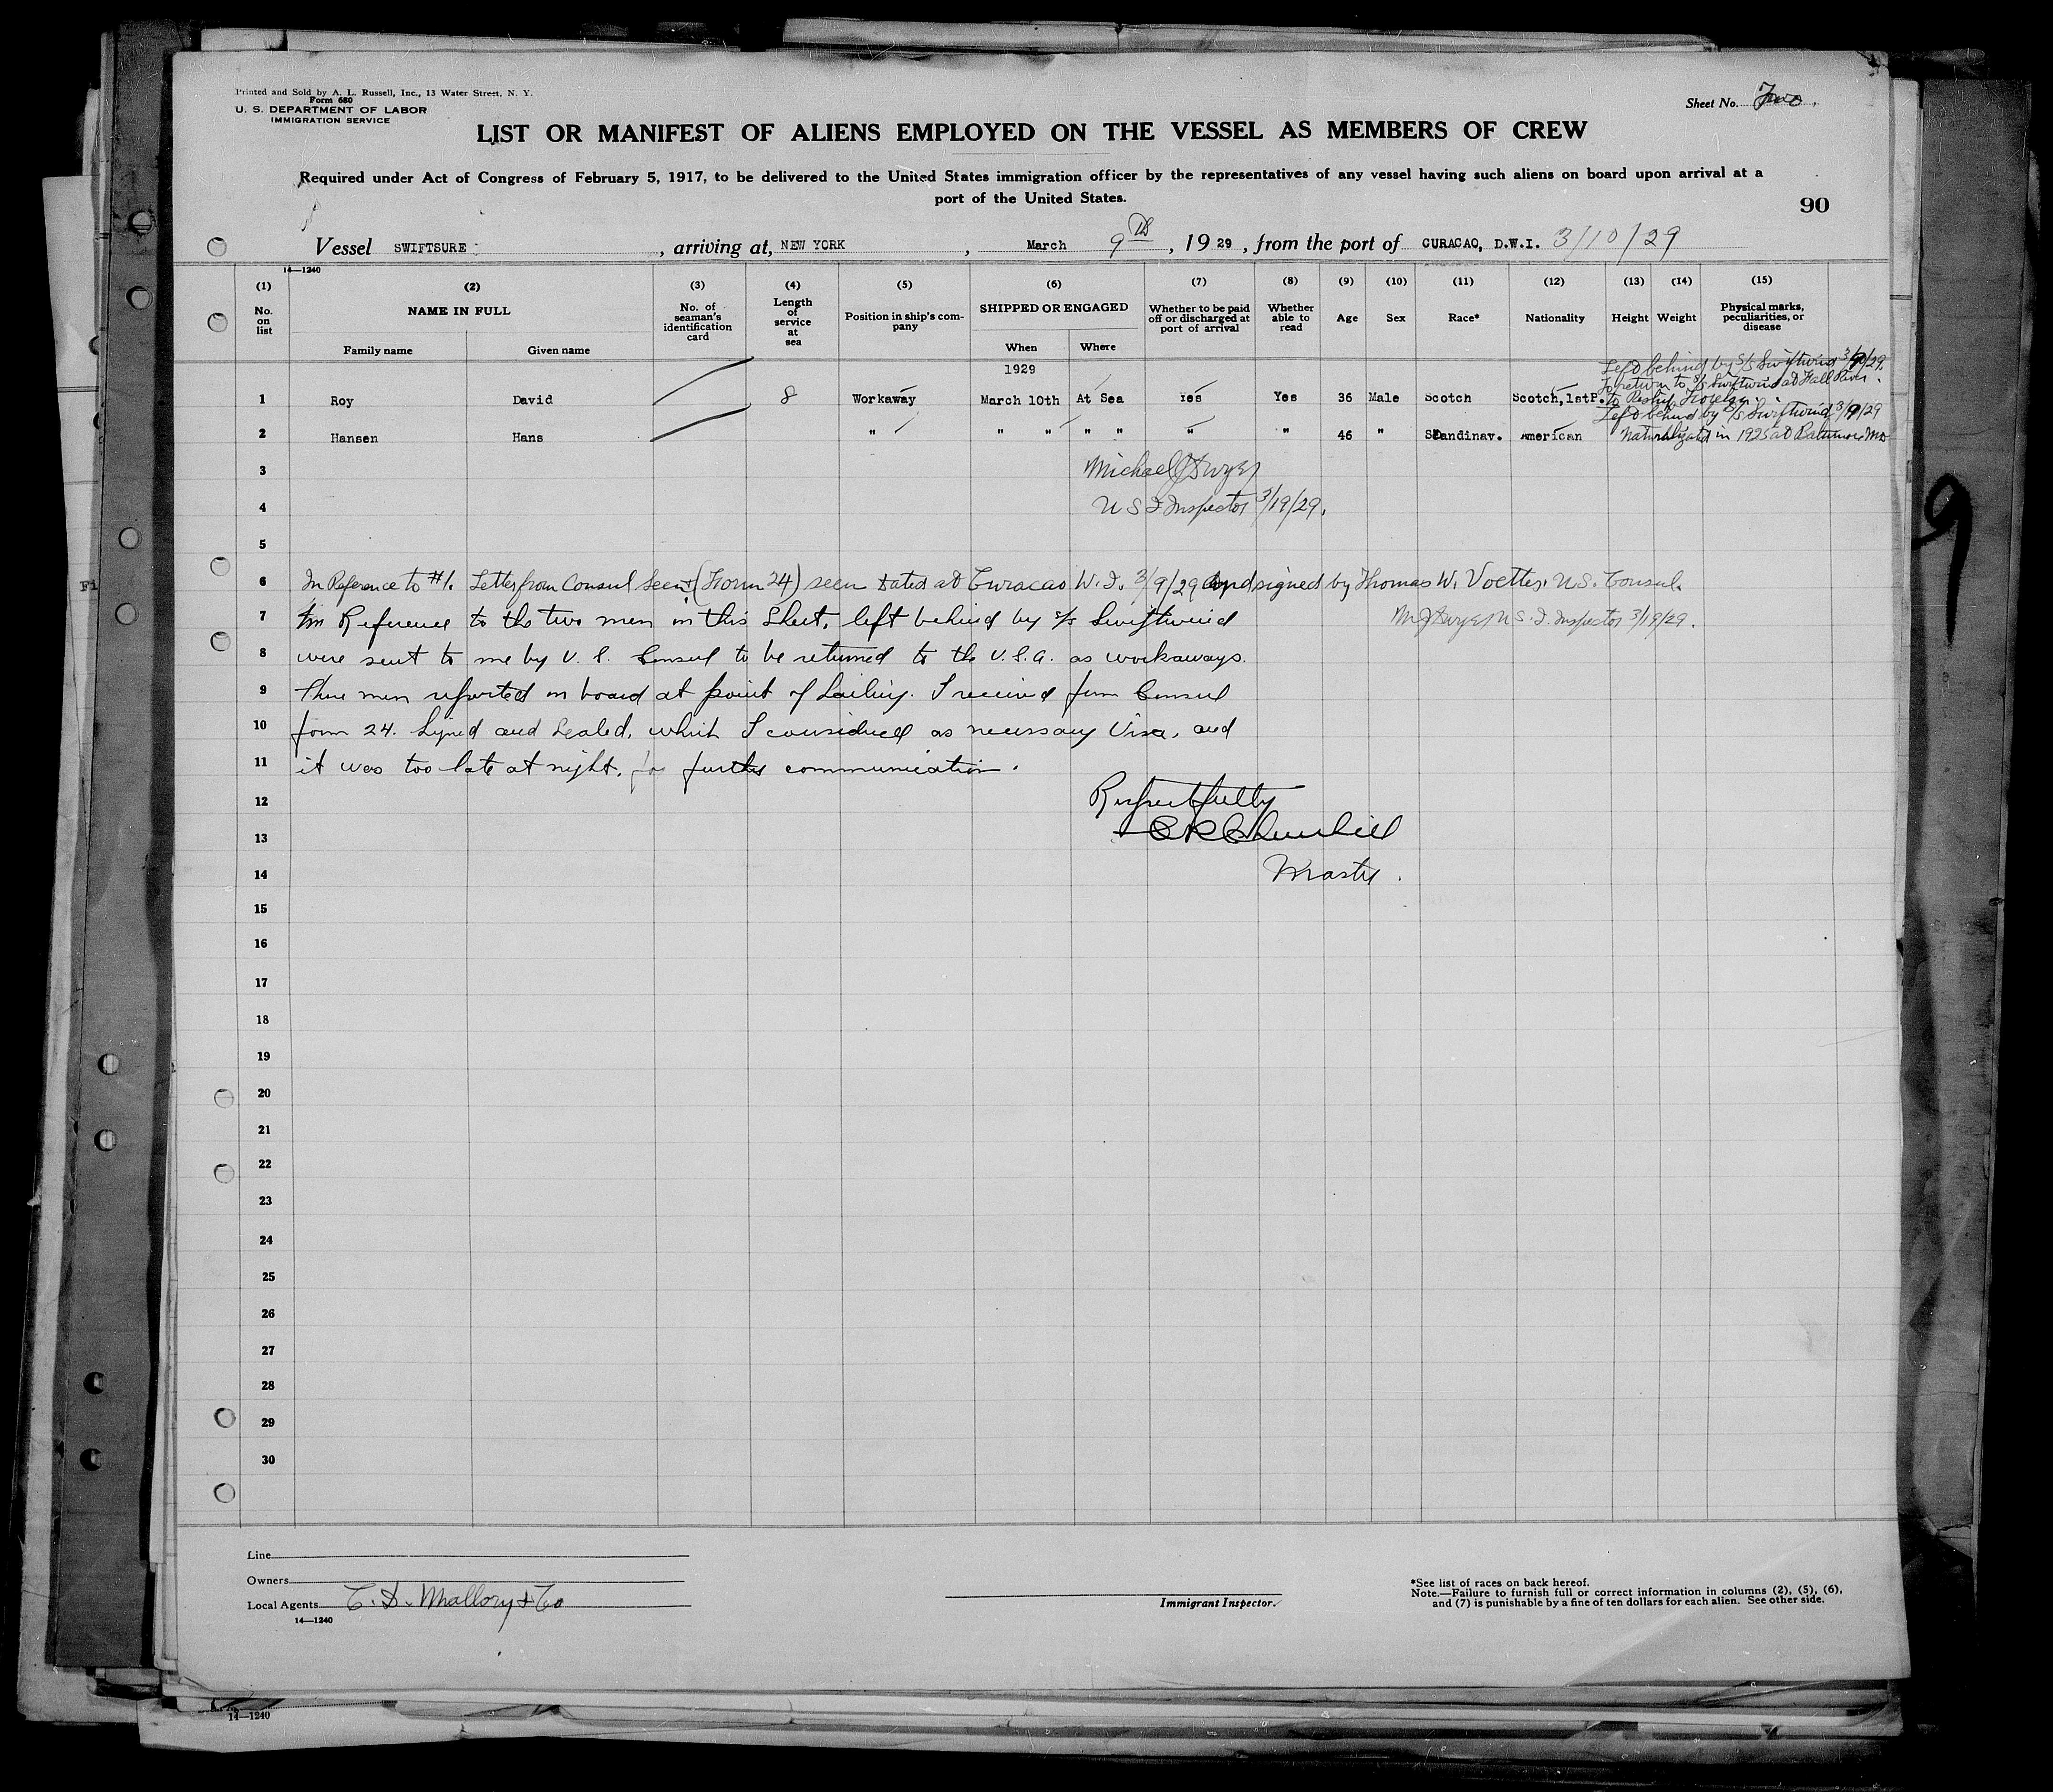 Printed and Sold by A. L. Russell, Inc., 13 Water Street, N. Y.
Form 680
U. S. DEPARTMENT OF LABOR
IMMIGRATION SERVICE
Sheet No. Two.
LIST OR MANIFEST OF ALIENS EMPLOYED ON THE VESSEL AS MEMBERS OF CREW
Required under Act of Congress of February 5, 1917, to be delivered to the United States immigration officer by the representatives of any vessel having such aliens on board upon arrival at a
port of the United States.
90
Vessel SWIFTSURE, arriving at, NEW YORK, March 9th, 1929, from the port of CURACAO, D.W.I. 3/10/29
14—1240
(1) (2) (3) (4) (5) (6) (7) (8) (9) (10) (11) (12) (13) (14) (15)
No. on list NAME IN FULL No. of seaman's identification card Length of service at sea Position in ship's company SHIPPED OR ENGAGED Whether to be paid off or discharged at port of arrival Whether able to read Age Sex Race* Nationality Height Weight Physical marks, peculiarities, or disease
Family name Given name When Where
1929
Left behind by S/S Swiftwind 3/9/29.
To return to S/S Swiftwind at Fall River.
1 Roy David 8 Workaway March 10th At Sea Yes Yes 36 Male Scotch Scotch, 1stP. to Reship Foreign.
Left behind by S/S Swiftwind 3/9/29
2 Hansen Hans " " " " " " " 46 " Scandinav. American Naturalized in 1925 at Baltimore Md
3 Michael J Dwyer
4 U S I Inspector 3/19/29.
5
6 In Reference to #1. Letter from Consul Seen (Form 24) seen dated at Curacao W. I. 3/9/29 and signed by Thomas W. Voetter. U.S. Consul.
M J Dwyer U S. I. Inspector 3/19/29.
7 In Reference to the two men in this Sheet, left behind by S/S Swiftwind
8 were sent to me by U. S. Consul to be returned to the U.S.A. as workaways.
9 These men reported on board at point of Sailing. I received from Consul
10 form 24. Signed and Sealed, which I considered as necessary Visa, and
11 it was too late at night, for further communication.
12 Respectfully
13
14 Master.
15
16
17
18
19
20
21
22
23
24
25
26
27
28
29
30
Line
Owners
Local Agents C. D. Mallory & Co
14—1240
Immigrant Inspector.
*See list of races on back hereof.
Note.—Failure to furnish full or correct information in columns (2), (5), (6),
and (7) is punishable by a fine of ten dollars for each alien. See other side.
14—1240
9